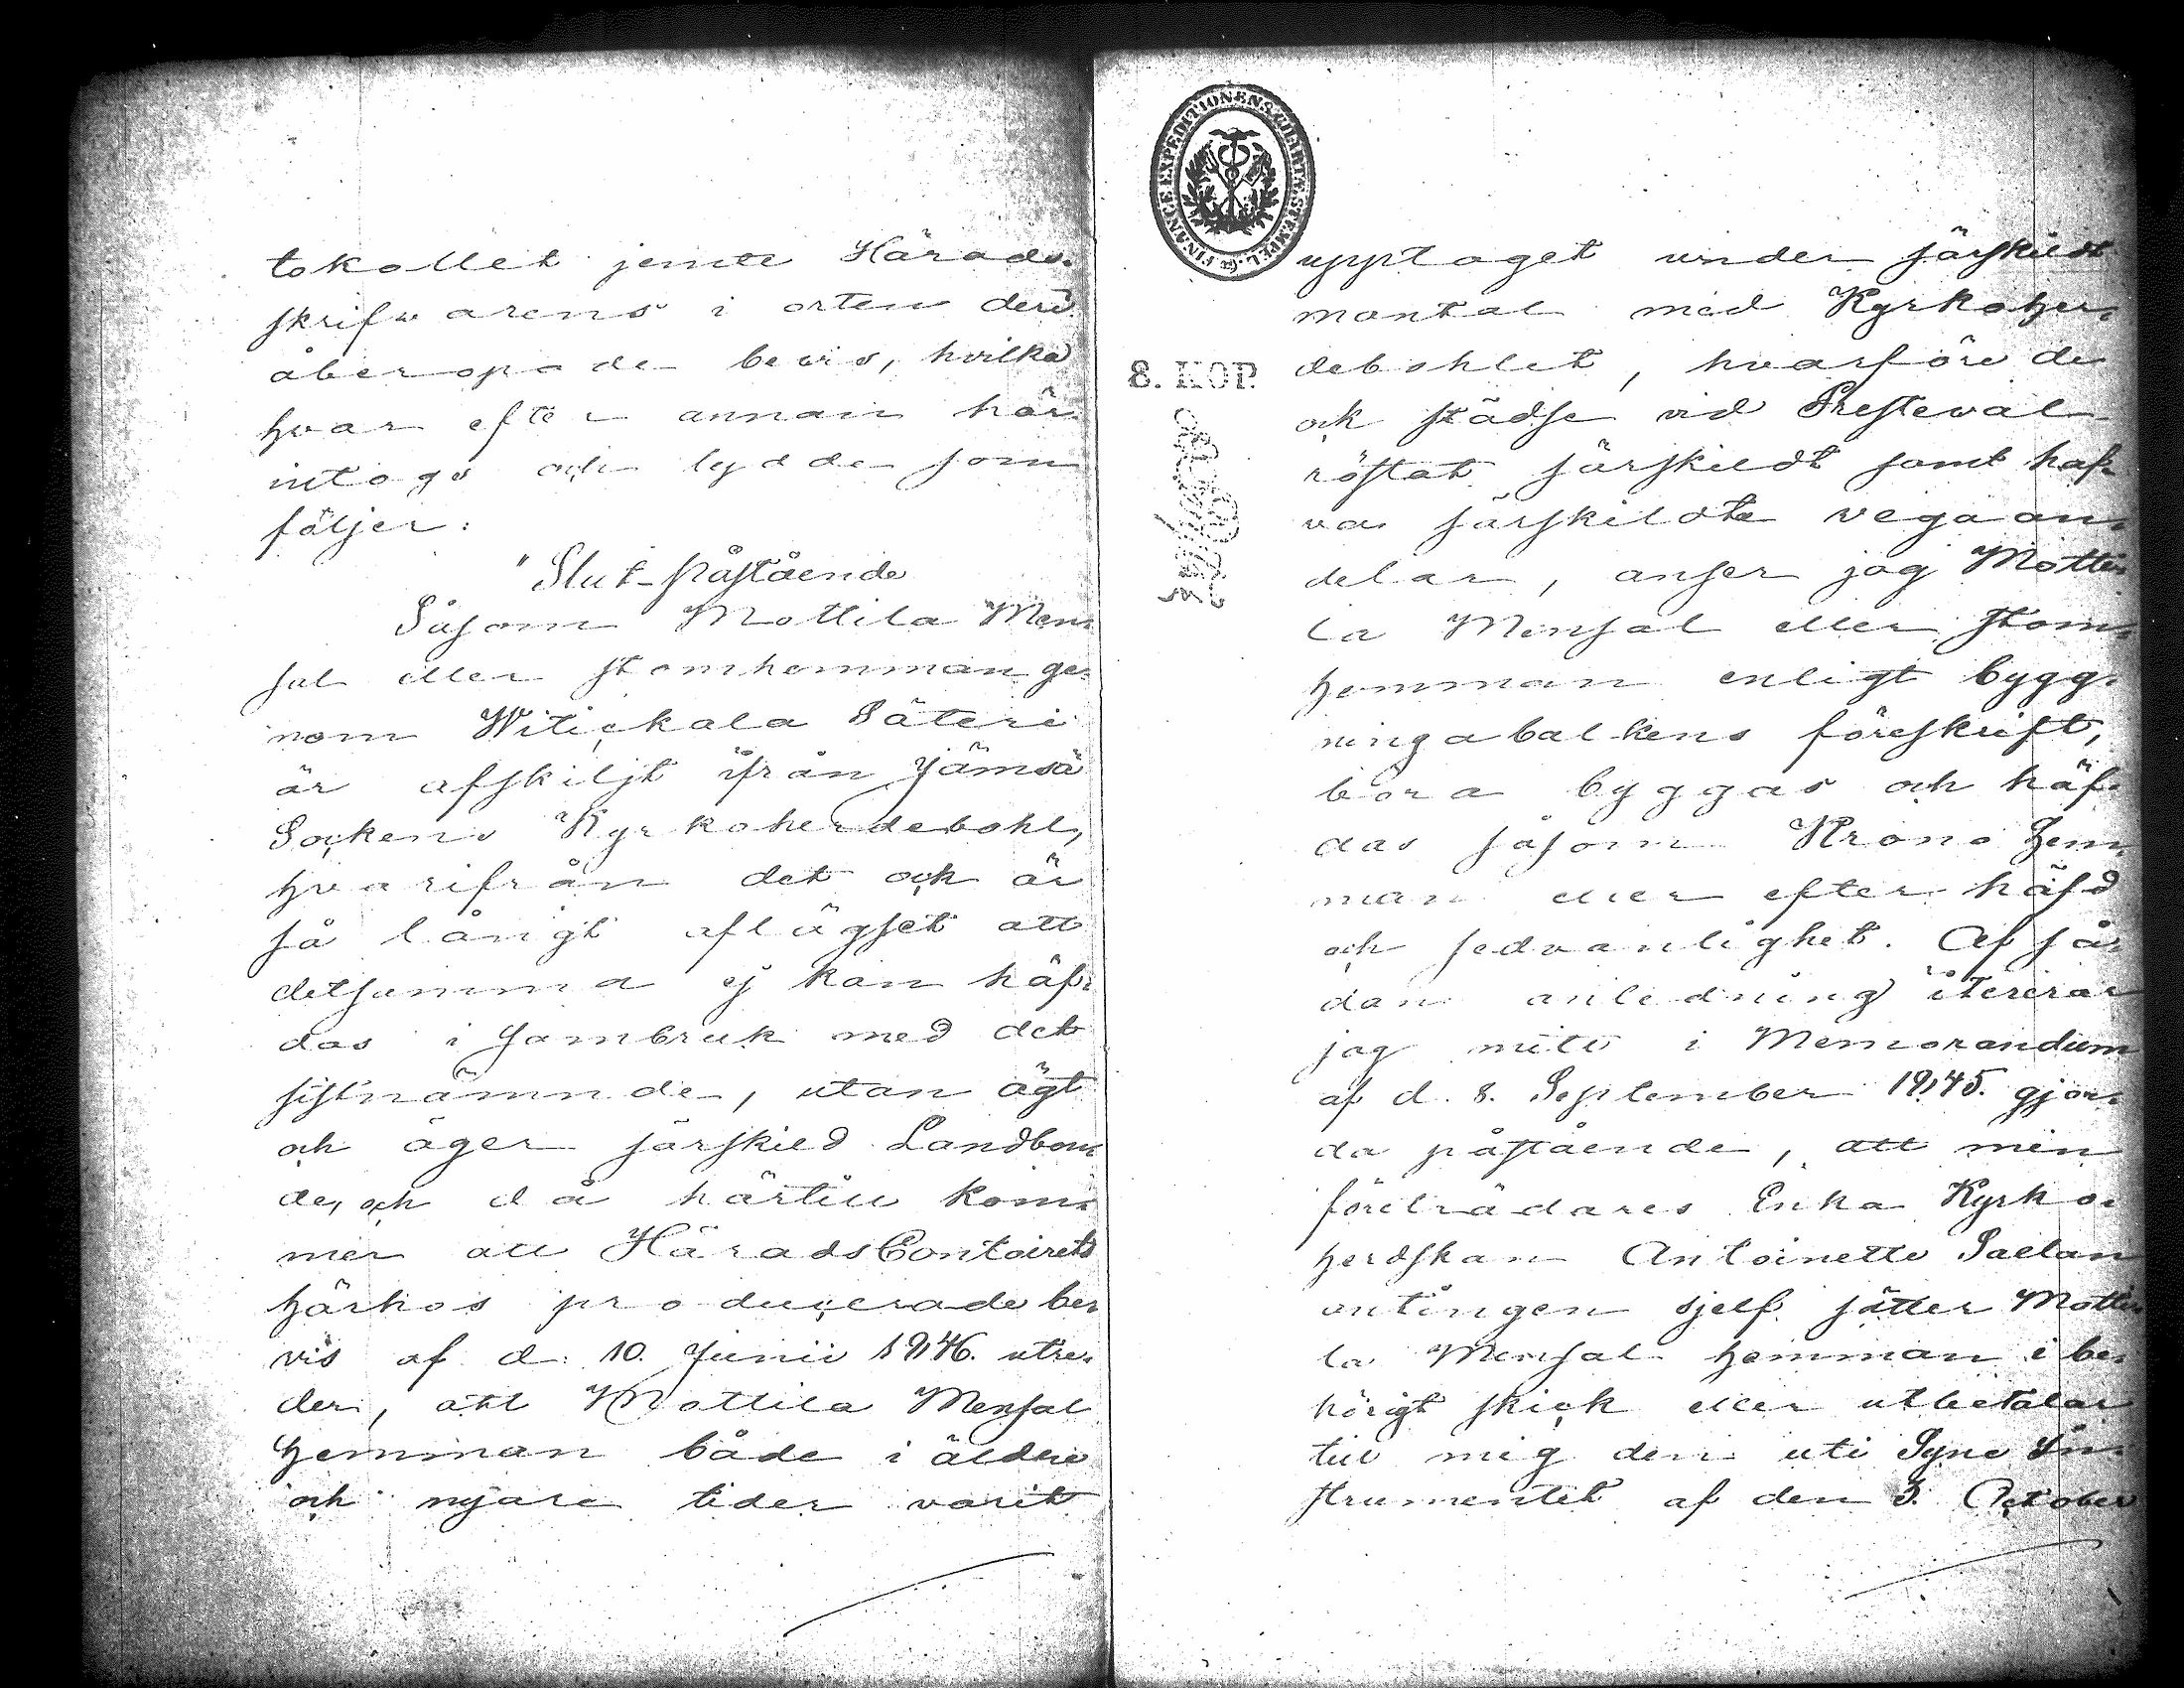 tokollet jemte Härads-
skrifvarens i orten deri
åberopade bevis, hvilka
hvar efter annan här
intogs och lydde som
följer:
"Slut-Påstående
Såsom Mottila Men-
sal eller stomhemman ge-
nom Witickala Säteri
är afskiljt ifrån Jämsä
Sockens Kyrkoherdebohl,
hvarifrån det ock är
så långt aflägset att
detsamma ej kan häf-
das i sambruk med det
sistnämnde, utan ägt
och äger särskild Landbon-
de, och då härtill kom-
mer att HäradsContoirets
härhos producerade be-
vis af d. 10. Junii 1846. utre-
der, att Mottila Mensal
hemman både i äldre
och nyare tider varit
FINANCE EXPEDITIONENS CHARTÆ STEMPEL
8. KOP.
upptaget under särskildt
mantal med Kyrkoher-
debohlet, hvarföre de
ock städse vid Prestevål
röstat särskildt samt haf-
va särskildta vegaan-
delar, anser jag Motti-
la Mensal eller stom-
hemman enligt bygg-
ningabalkens föreskrift,
böra byggas och häf-
das såsom Krono hem-
man eller efter häfd
och sedvanlighet. Af så-
dan anledning itererar
jag mitt i Memorandum
af d. 8. September 1845. gjor-
da påstående, att min
företrädares Enka Kyrko-
herdskan Antoinette Saelan
antingen sjelf sätter Motti-
la Mensal hemman i be-
hörigt skick eller utbetalar
till mig den uti Syne In-
strumentet af den 3. October